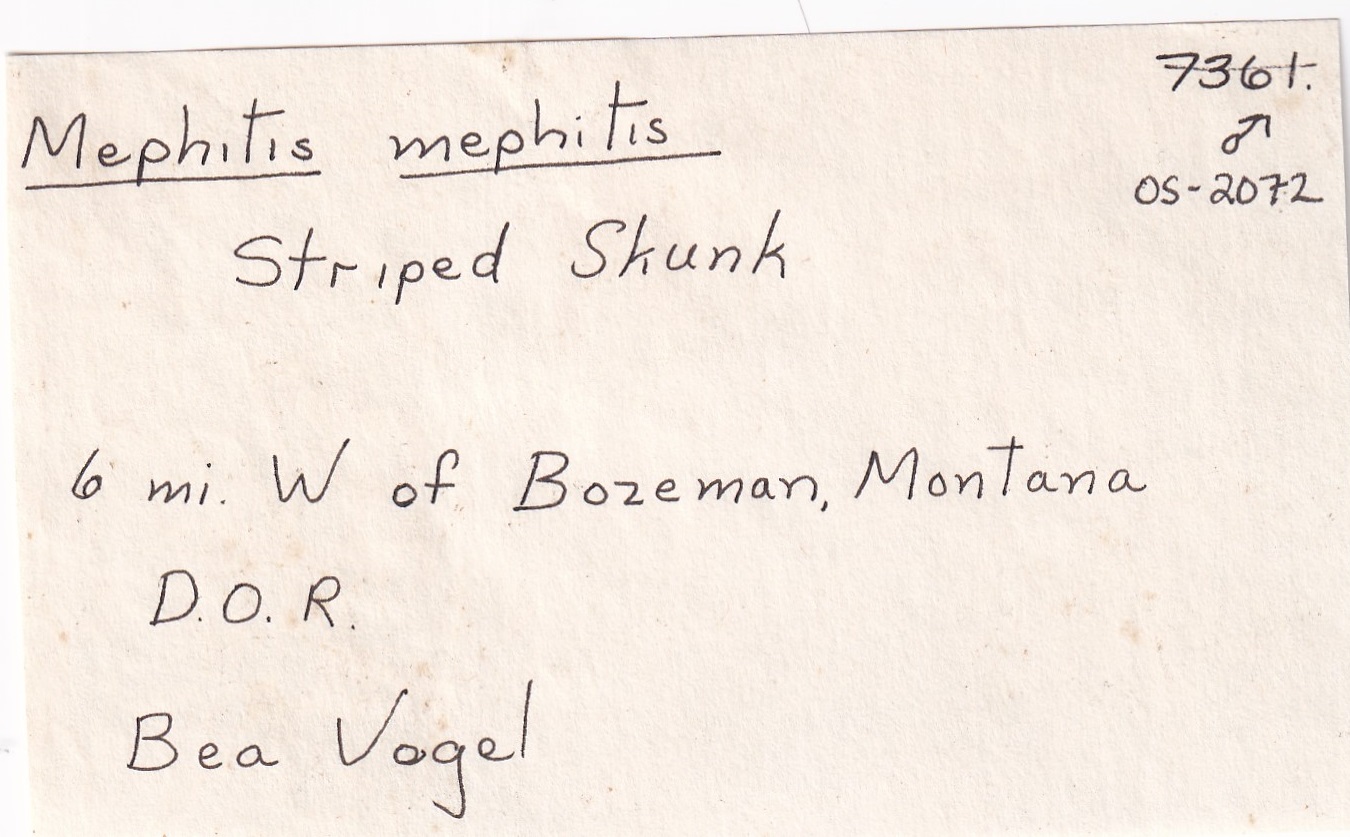 7361.
♂
OS-2072
Mephitis mephitis
Striped Skunk
6 mi. W of Bozeman, Montana
D.O.R.
Bea Vogel